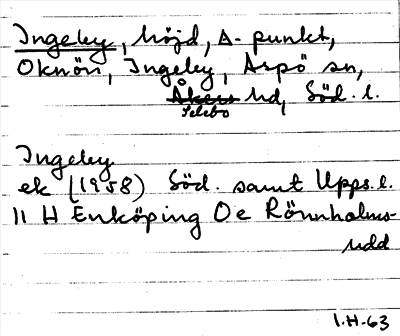 Ingeley, höjd, Δ-punkt,
Oknön, Ingeley, Aspö sn,
Åkers hd, Söd. l.
Selebo
Ingeley
ek (1958) Söd. samt Upps. l.
11 H Enköping Oe Rönnholms-
udd
I.H-63